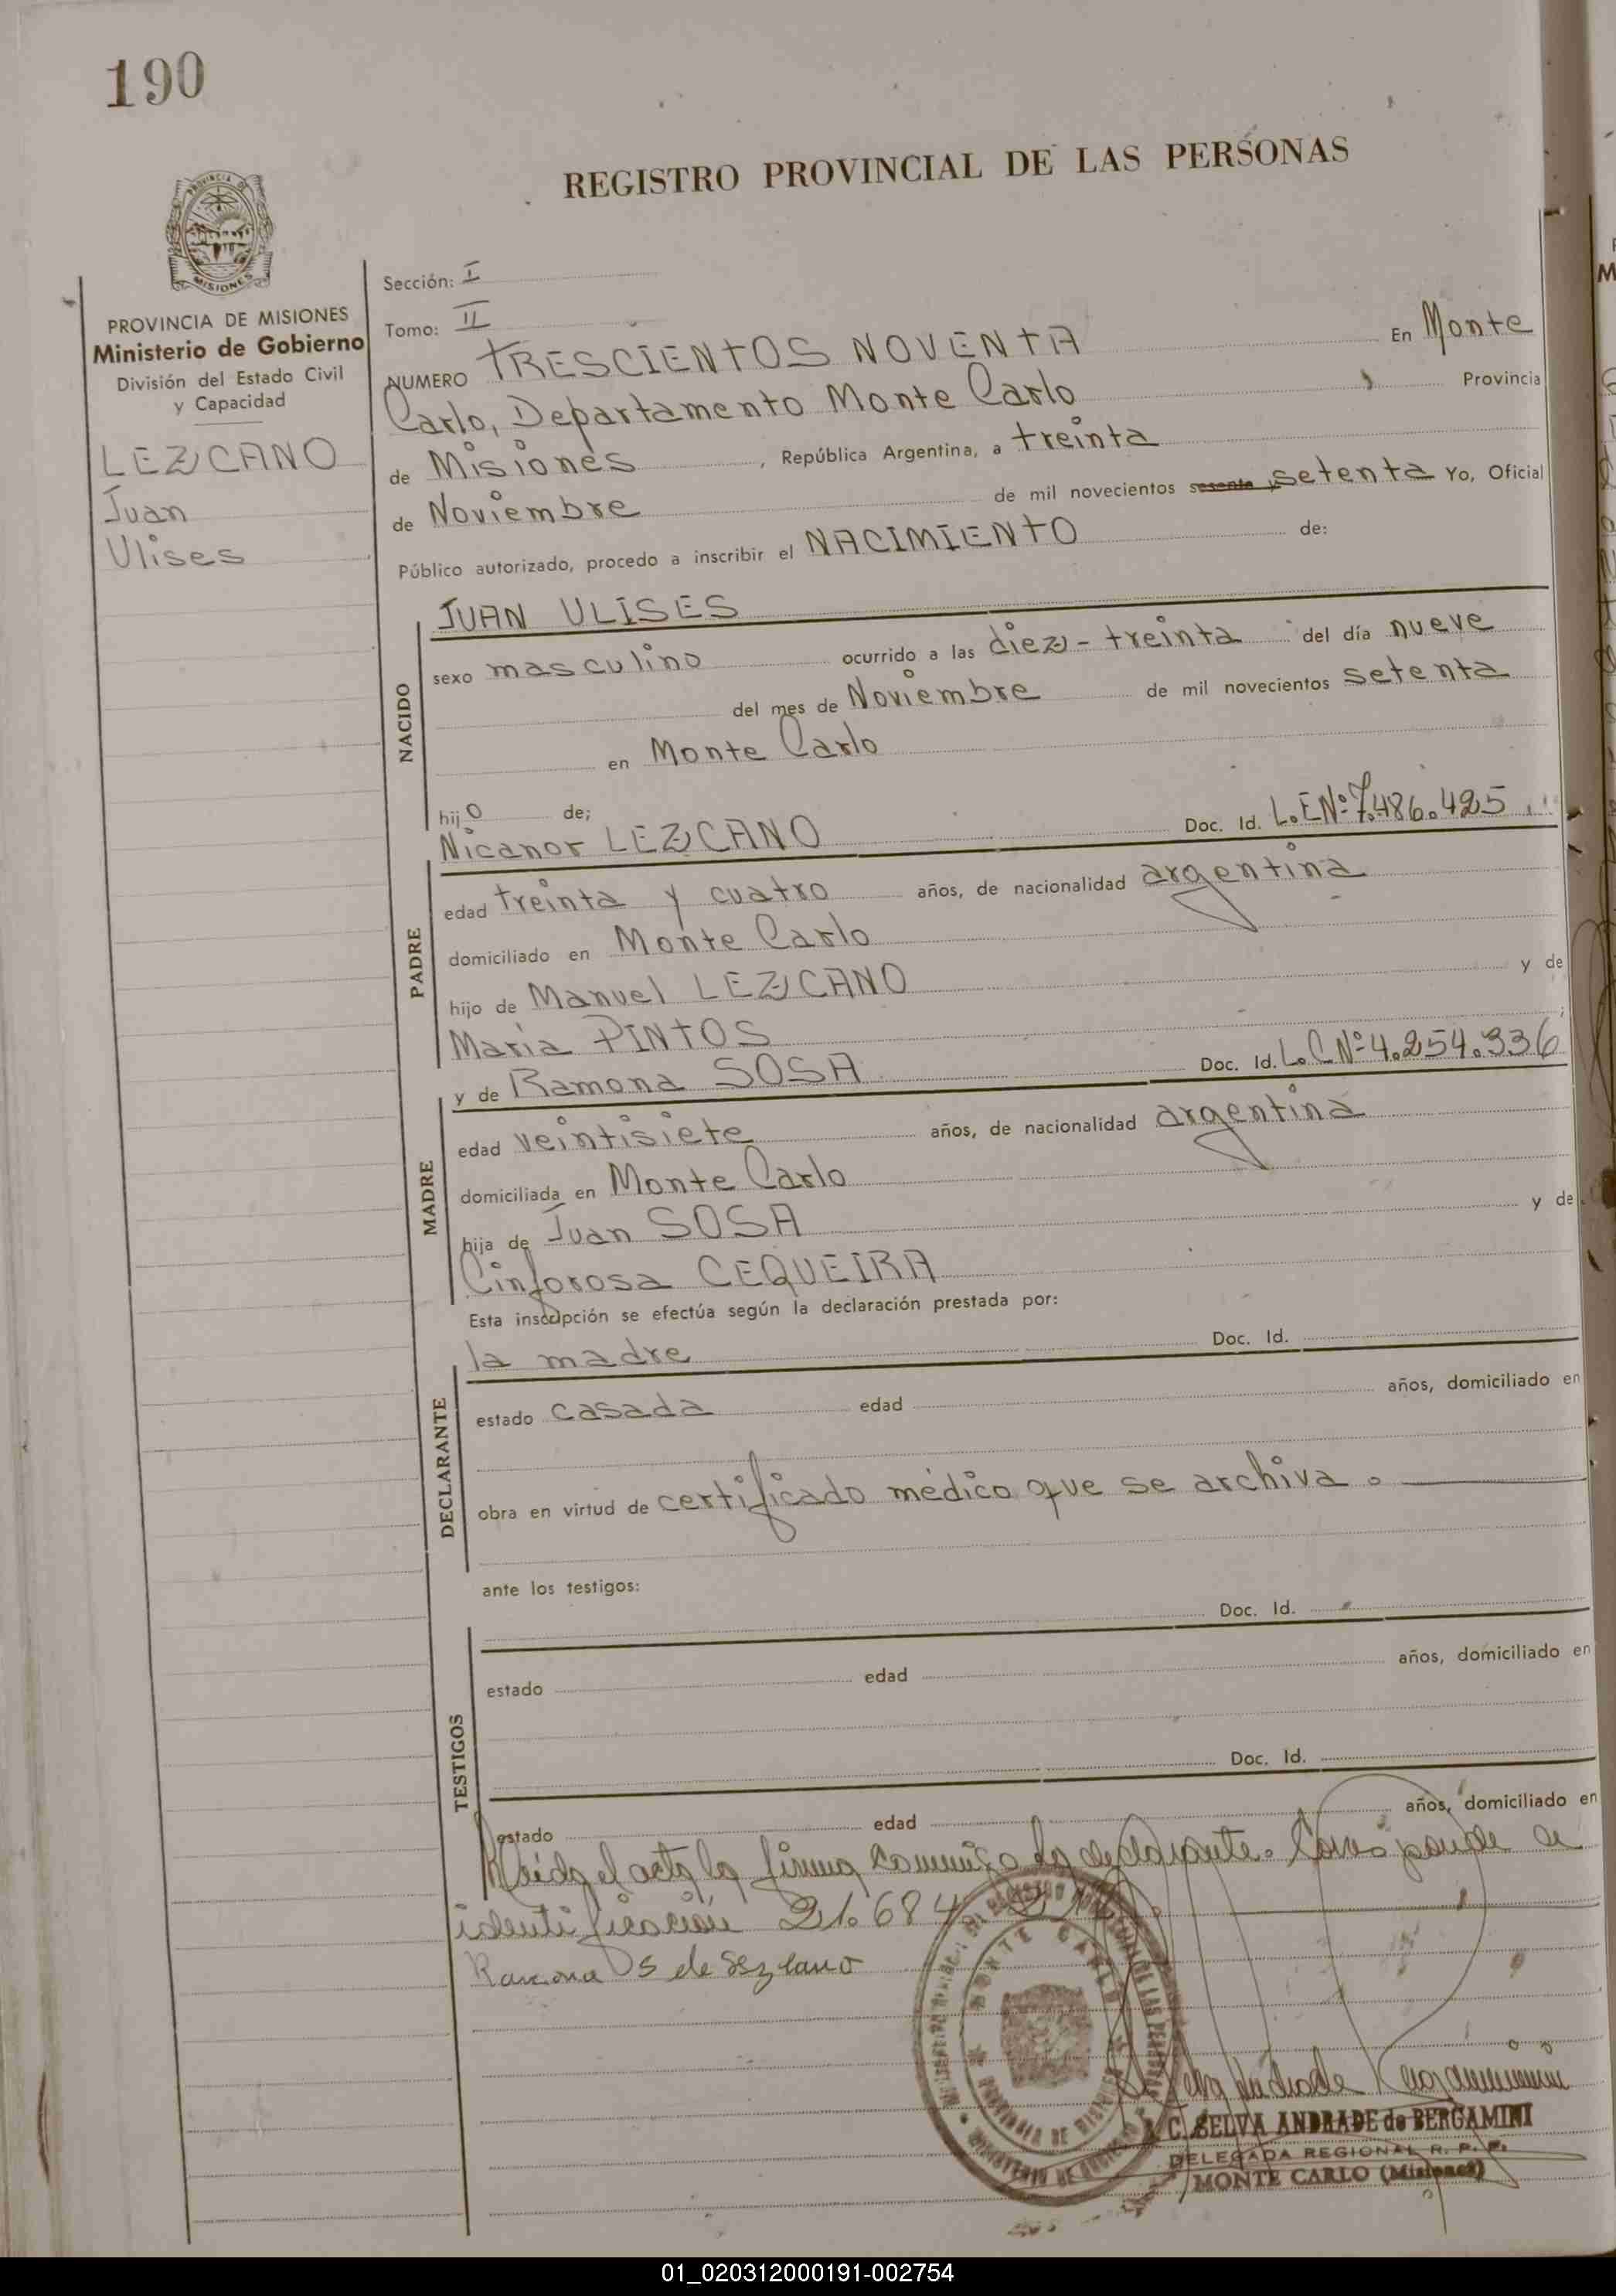 190
REGISTRO PROVINCIAL DE LAS PERSONAS
PROVINCIA DE MISIONES
Ministerio de Gobierno
División del Estado Civil
y Capacidad
LEZCANO
Juan
Ulises
Sección: I
Tomo: II
NUMERO TRESCIENTOS NOVENTA En Monte
Carlo, Departamento Monte Carlo, Provincia
de Misiones, República Argentina, a treinta
de Noviembre de mil novecientos sesenta setenta Yo, Oficial
Público autorizado, procedo a inscribir el NACIMIENTO de:
JUAN ULISES
NACIDO
sexo masculino ocurrido a las diez - treinta del día nueve
del mes de Noviembre de mil novecientos setenta
en Monte Carlo
hijo de;
Nicanor LEZCANO Doc. Id. L.E Nº 7.486.425
PADRE
edad treinta y cuatro años, de nacionalidad argentina
domiciliado en Monte Carlo
hijo de Manuel LEZCANO y de
Maria PINTOS ;
y de Ramona SOSA Doc. Id. L.C Nº 4.254.336
MADRE
edad veintisiete años, de nacionalidad argentina
domiciliada en Monte Carlo
hija de Juan SOSA y de
Cinforosa CEQUEIRA
Esta inscripción se efectúa según la declaración prestada por:
la madre Doc. Id.
DECLARANTE
estado casada edad años, domiciliado en
obra en virtud de certificado médico que se archiva.
ante los testigos:
Doc. Id.
TESTIGOS
estado edad años, domiciliado en
Doc. Id.
estado edad años, domiciliado en
Leida el acta la firma conmigo la declarante. Corresponde a
identificación 21.684
Ramona S de Lezcano
MONTE CARLO
PROVINCIA DE MISIONES
C. SELVA ANDRADE de BERGAMINI
DELEGADA REGIONAL R. P. P.
MONTE CARLO (Misiones)
01_020312000191-002754